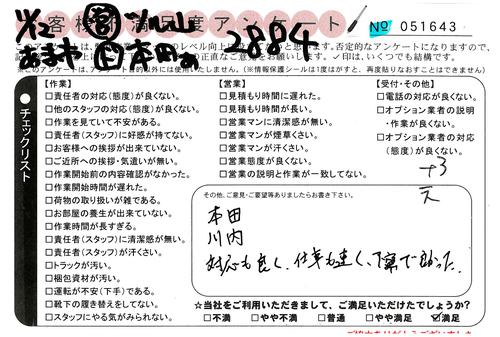 お客様の満足度アンケート
No 051643
11/12
2884
本田
※このアンケートは、アンケート目的以外には使用いたしません。(※情報保護シールは1度はがすと、再度貼りなおすことはできません)
チェックリスト
【作業】
□責任者の対応(態度)が良くない。
□他のスタッフの対応(態度)が良くない。
□作業を見ていて不安がある。
□責任者(スタッフ)に好感が持てない。
□お客様への挨拶が出来ていない。
□ご近所への挨拶・気遣いが無い。
□作業開始前の内容確認がなかった。
□作業開始時間が遅れた。
□荷物の取り扱いが雑である。
□お部屋の養生が出来ていない。
□作業時間が長すぎる。
□責任者(スタッフ)に清潔感が無い。
□責任者(スタッフ)が汗くさい。
□トラックが汚い。
□梱包資材が汚い。
□運転が不安(下手)である。
□靴下の履き替えをしてない。
□スタッフにやる気がみられない。
【営業】
□見積もり時間に遅れた。
□見積もり時間が長い。
□営業マンに清潔感が無い。
□営業マンが煙草くさい。
□営業マンが汗くさい。
□営業態度が良くない。
□営業の説明と作業が一致してない。
【受付・その他】
□電話の対応が良くない。
□オプション業者の説明
・作業が良くない。
□オプション業者の対応
(態度)が良くない。
+3
その他、ご意見・ご要望等ありましたらお書き下さい。
本田
川内
対応も良く、仕事も速く、丁寧で良かった。
☆当社をご利用いただきまして、ご満足いただけたでしょうか?
□不満 □やや不満 □普通 □やや満足 ☑満足